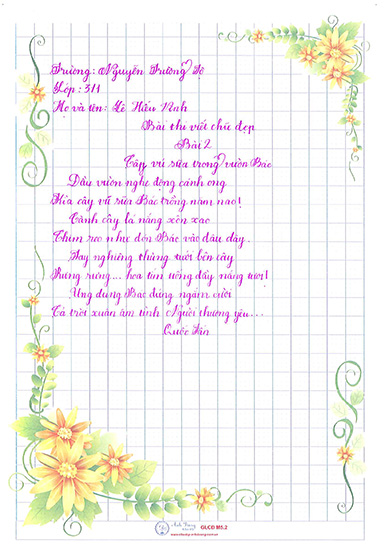 Trường: Nguyễn Trường Tộ
Lớp: 3/1
Họ và tên: Lê Hiểu Minh
Bài thi viết chữ đẹp
Bài 2
Cây vú sữa trong vườn Bác
Đầu vườn nghe động cánh ong
Kìa cây vú sữa Bác trồng năm nao!
Cành cây lá nắng xôn xao
Chim reo như đón Bác vào đâu đây.
Tay nghiêng thùng tưới bên cây
Rưng rưng... hoa tím uống đầy nắng tươi!
Ung dung Bác đứng ngắm cười
Cả trời xuân ấm tình Người thương yêu...
Quốc Tấn
Anh Dũng
GLCD M5.2